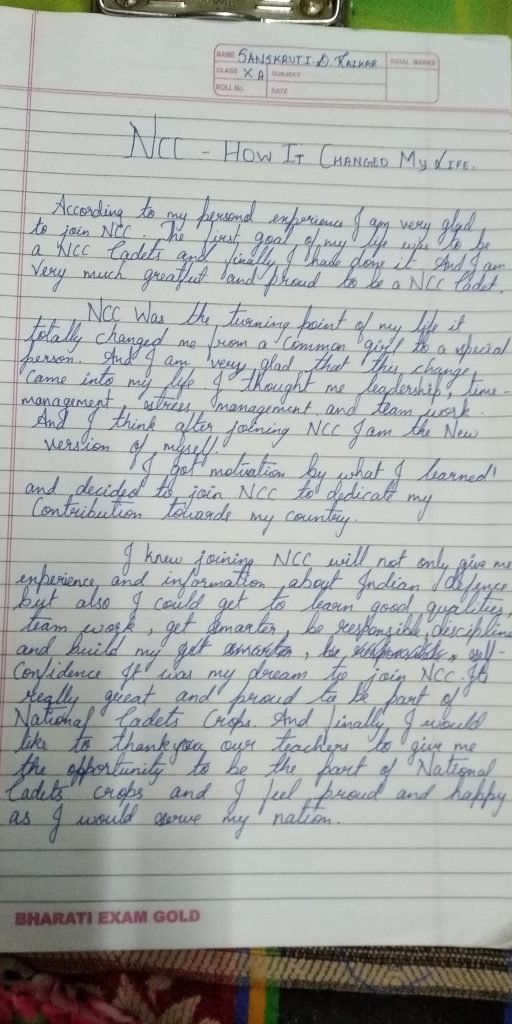 NAME SANSKRUTI. D. KAIKAR TOTAL MARKS
CLASS X A SUBJECT
ROLL No. DATE
NCC - HOW IT CHANGED MY LIFE.
According to my personal experience I am very glad
to join NCC. The first goal of my life was to be
a NCC Cadets and finally I have done it. And I am
very much greatful and proud to be a NCC Cadet.
NCC Was the turning point of my life it
totally changed me from a common girl to a special
person. And I am very glad that this change
came into my life. I thought me leadership, time-
management, stress management and team work.
And I think after joining NCC I am the New
version of myself.
I got motivation by what I learned
and decided to join NCC to dedicate my
Contribution towards my country.
I knew joining NCC will not only give me
enperience and information about Indian defence
but also I could get to learn good qualities,
team work, get smarter, be responsible, discipline
and build my get smarter, be responsible, self-
confidence It was my dream to join NCC. It
really great and proud to be part of
National Cadets Crops. And finally I would
like to thankyou our teachers to give me
the opportunity to be the part of National
Cadets crops and I feel proud and happy
as I would serve my nation.
BHARATI EXAM GOLD